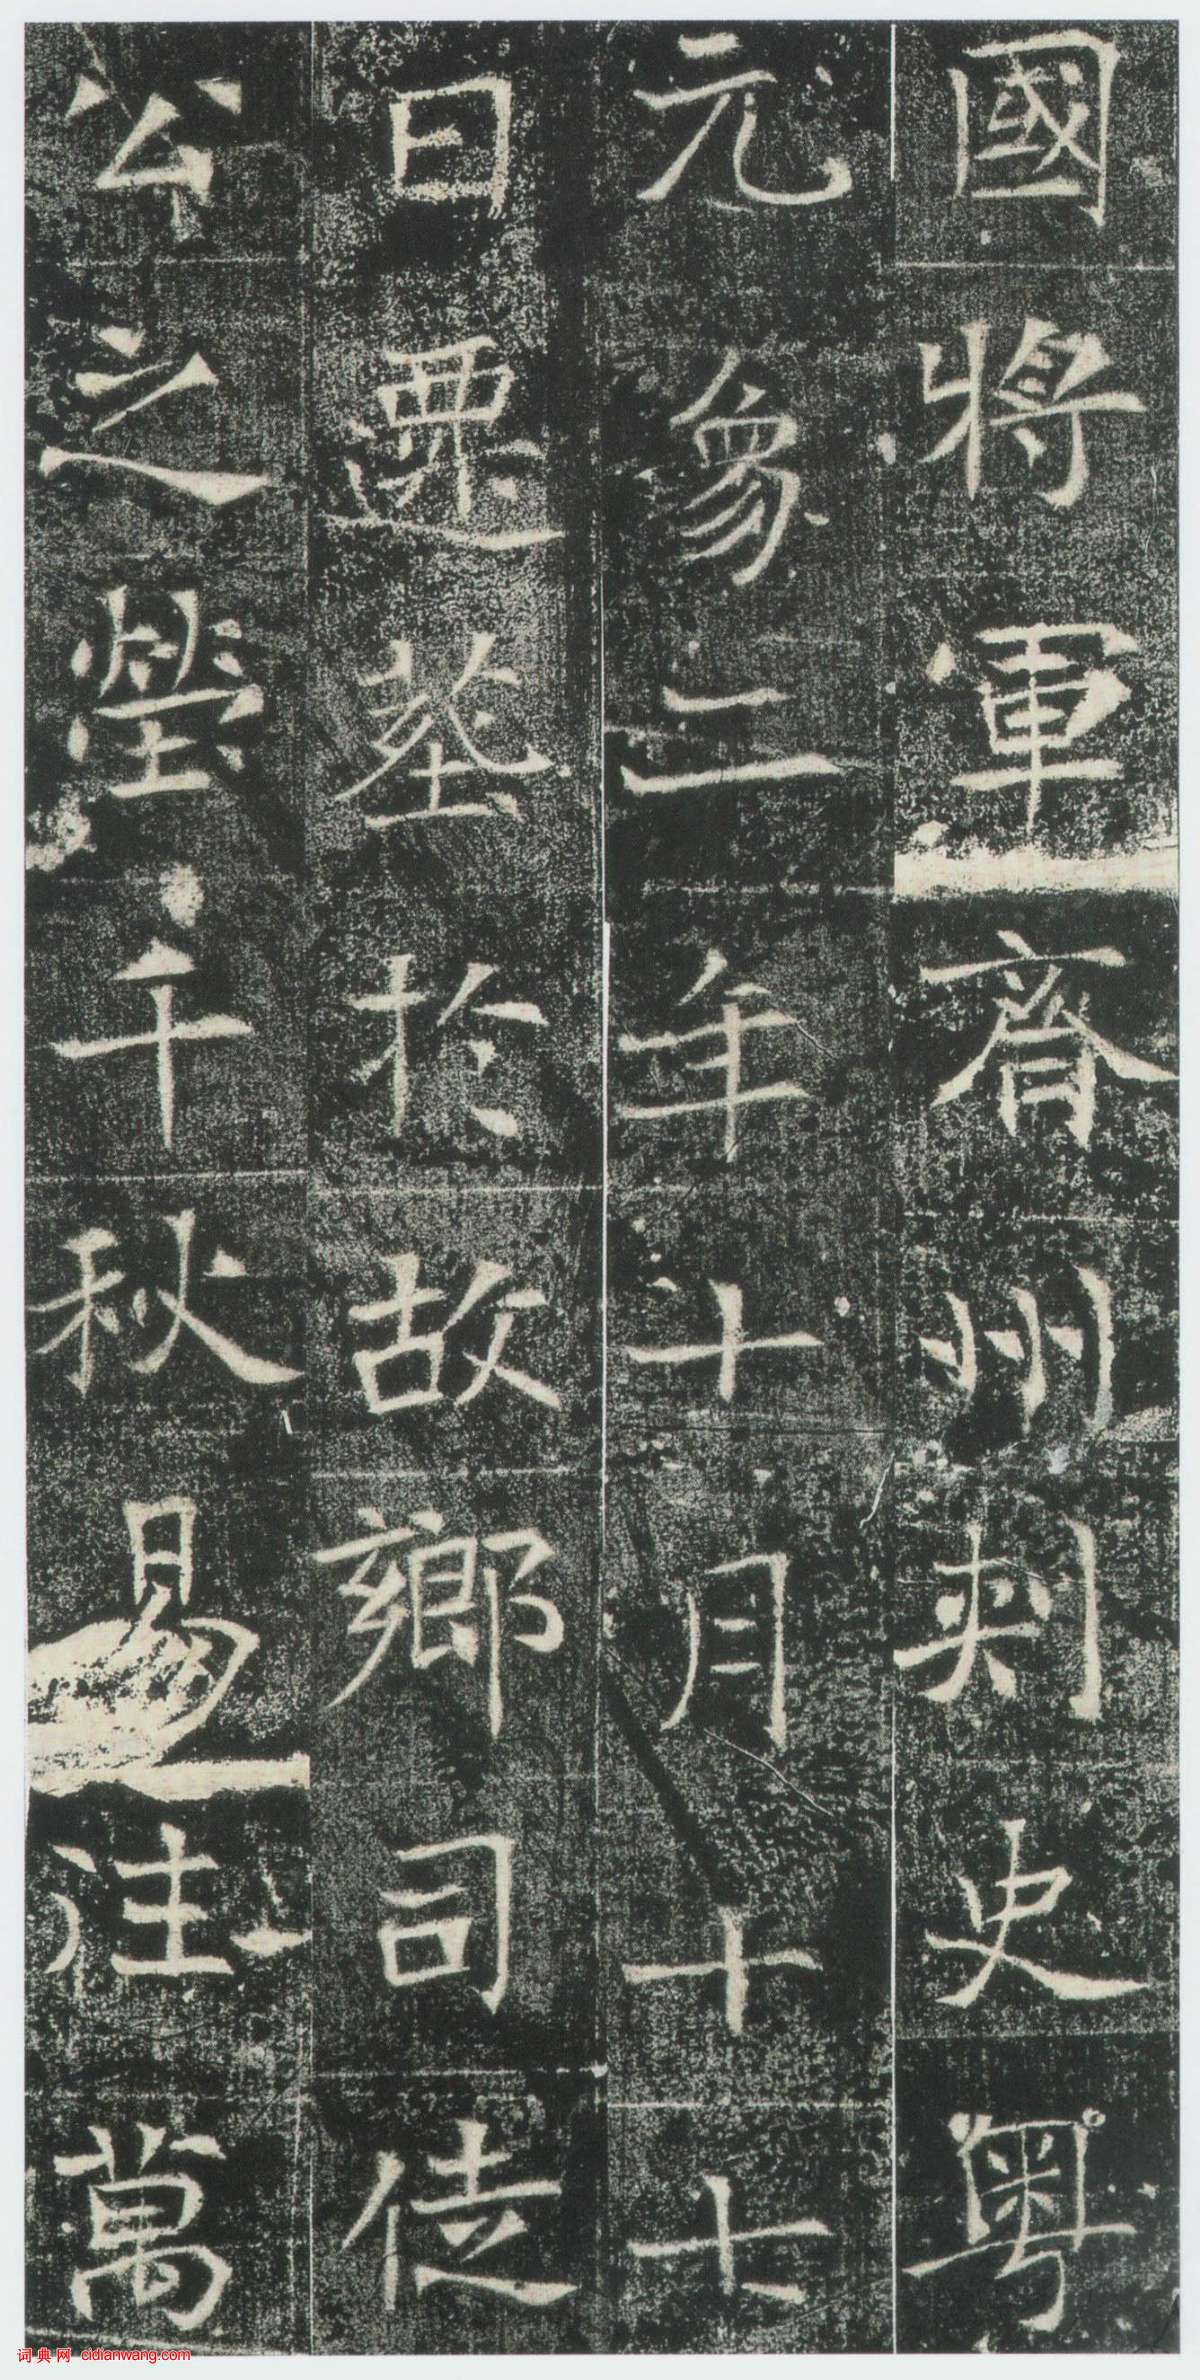 國將軍齊州刺史粵
元象二年十月十七
日遷葬於故鄉司徒
公之塋千秋易往萬
词典网 cidianwang.com